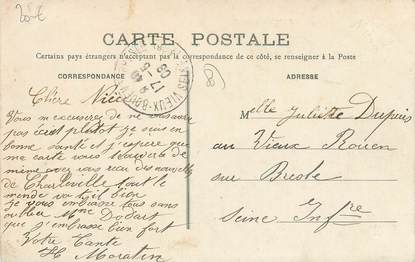 20€
CARTE POSTALE
Certains pays étrangers n'acceptant pas la correspondance de ce côté, se renseigner à la Poste
CORRESPONDANCE
ADRESSE
Chère Nièce
Vous m excuserez de ne
pas plutot je suis en
bonne santé et j'espere que
ma carte vous trouvera de
même avez vous recu des nouvelles
de Charleville tout le
monde va bil bien
je vous embrasse tous sans
oublier Mme Dodart
que j'embrasse bien fort
Votre Tante
H Moratin
Melle Juliette Dupuis
au Vieux Rouen
sur Bresle
Seine Infre